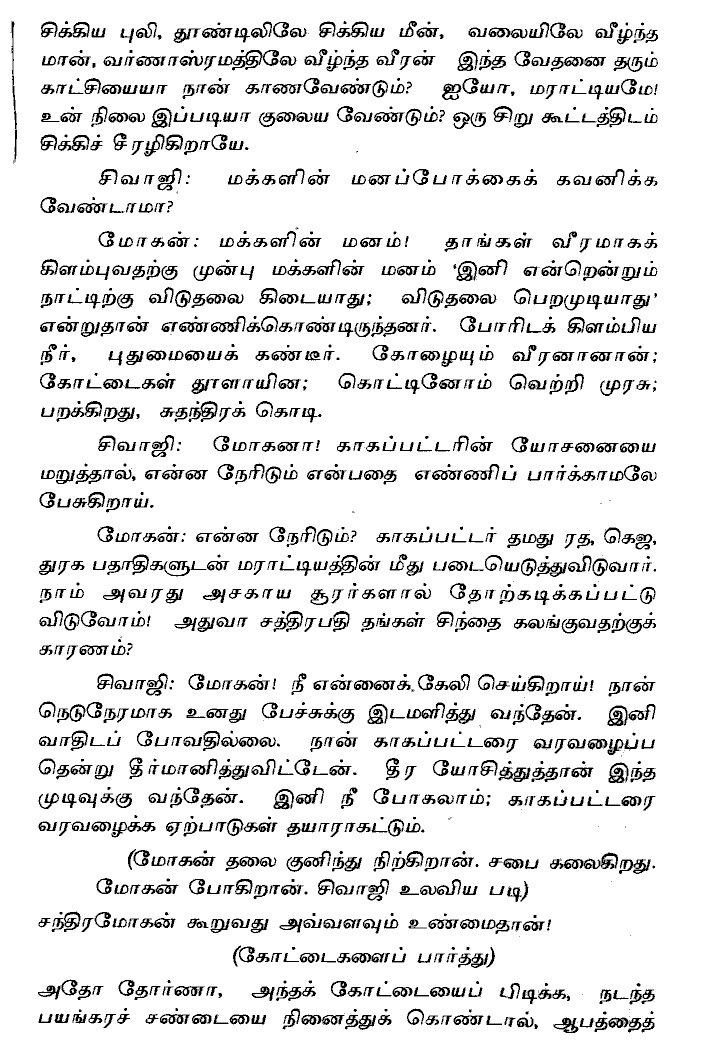 சிக்கிய புலி, தூண்டிலிலே சிக்கிய மீன், வலையிலே வீழ்ந்த
மான், வர்ணாஸ்ரமத்திலே வீழ்ந்த வீரன் இந்த வேதனை தரும்
காட்சியையா நான் காணவேண்டும்? ஐயோ, மராட்டியமே!
உன் நிலை இப்படியா குலைய வேண்டும்? ஒரு சிறு கூட்டத்திடம்
சிக்கிச் சீரழிகிறாயே.
சிவாஜி: மக்களின் மனப்போக்கைக் கவனிக்க
வேண்டாமா?
மோகன்: மக்களின் மனம்! தாங்கள் வீரமாகக்
கிளம்புவதற்கு முன்பு மக்களின் மனம் 'இனி என்றென்றும்
நாட்டிற்கு விடுதலை கிடையாது; விடுதலை பெறமுடியாது'
என்றுதான் எண்ணிக்கொண்டிருந்தனர். போரிடக் கிளம்பிய
நீர், புதுமையைக் கண்டீர். கோழையும் வீரனானான்;
கோட்டைகள் தூளாயின; கொட்டினோம் வெற்றி முரசு;
பறக்கிறது, சுதந்திரக் கொடி.
சிவாஜி: மோகனா! காகப்பட்டரின் யோசனையை
மறுத்தால், என்ன நேரிடும் என்பதை எண்ணிப் பார்க்காமலே
பேசுகிறாய்.
மோகன்: என்ன நேரிடும்? காகப்பட்டர் தமது ரத, கெஜ,
துரக பதாதிகளுடன் மராட்டியத்தின் மீது படையெடுத்துவிடுவார்.
நாம் அவரது அசகாய சூரர்களால் தோற்கடிக்கப்பட்டு
விடுவோம்! அதுவா சத்திரபதி தங்கள் சிந்தை கலங்குவதற்குக்
காரணம்?
சிவாஜி: மோகன்! நீ என்னைக் கேலி செய்கிறாய்! நான்
நெடுநேரமாக உனது பேச்சுக்கு இடமளித்து வந்தேன். இனி
வாதிடப் போவதில்லை. நான் காகப்பட்டரை வரவழைப்ப
தென்று தீர்மானித்துவிட்டேன். தீர யோசித்துத்தான் இந்த
முடிவுக்கு வந்தேன். இனி நீ போகலாம்; காகப்பட்டரை
வரவழைக்க ஏற்பாடுகள் தயாராகட்டும்.
(மோகன் தலை குனிந்து நிற்கிறான். சபை கலைகிறது.
மோகன் போகிறான். சிவாஜி உலவிய படி)
சந்திரமோகன் கூறுவது அவ்வளவும் உண்மைதான்!
(கோட்டைகளைப் பார்த்து)
அதோ தோர்ணா, அந்தக் கோட்டையைப் பிடிக்க, நடந்த
பயங்கரச் சண்டையை நினைத்துக் கொண்டால், ஆபத்தைத்